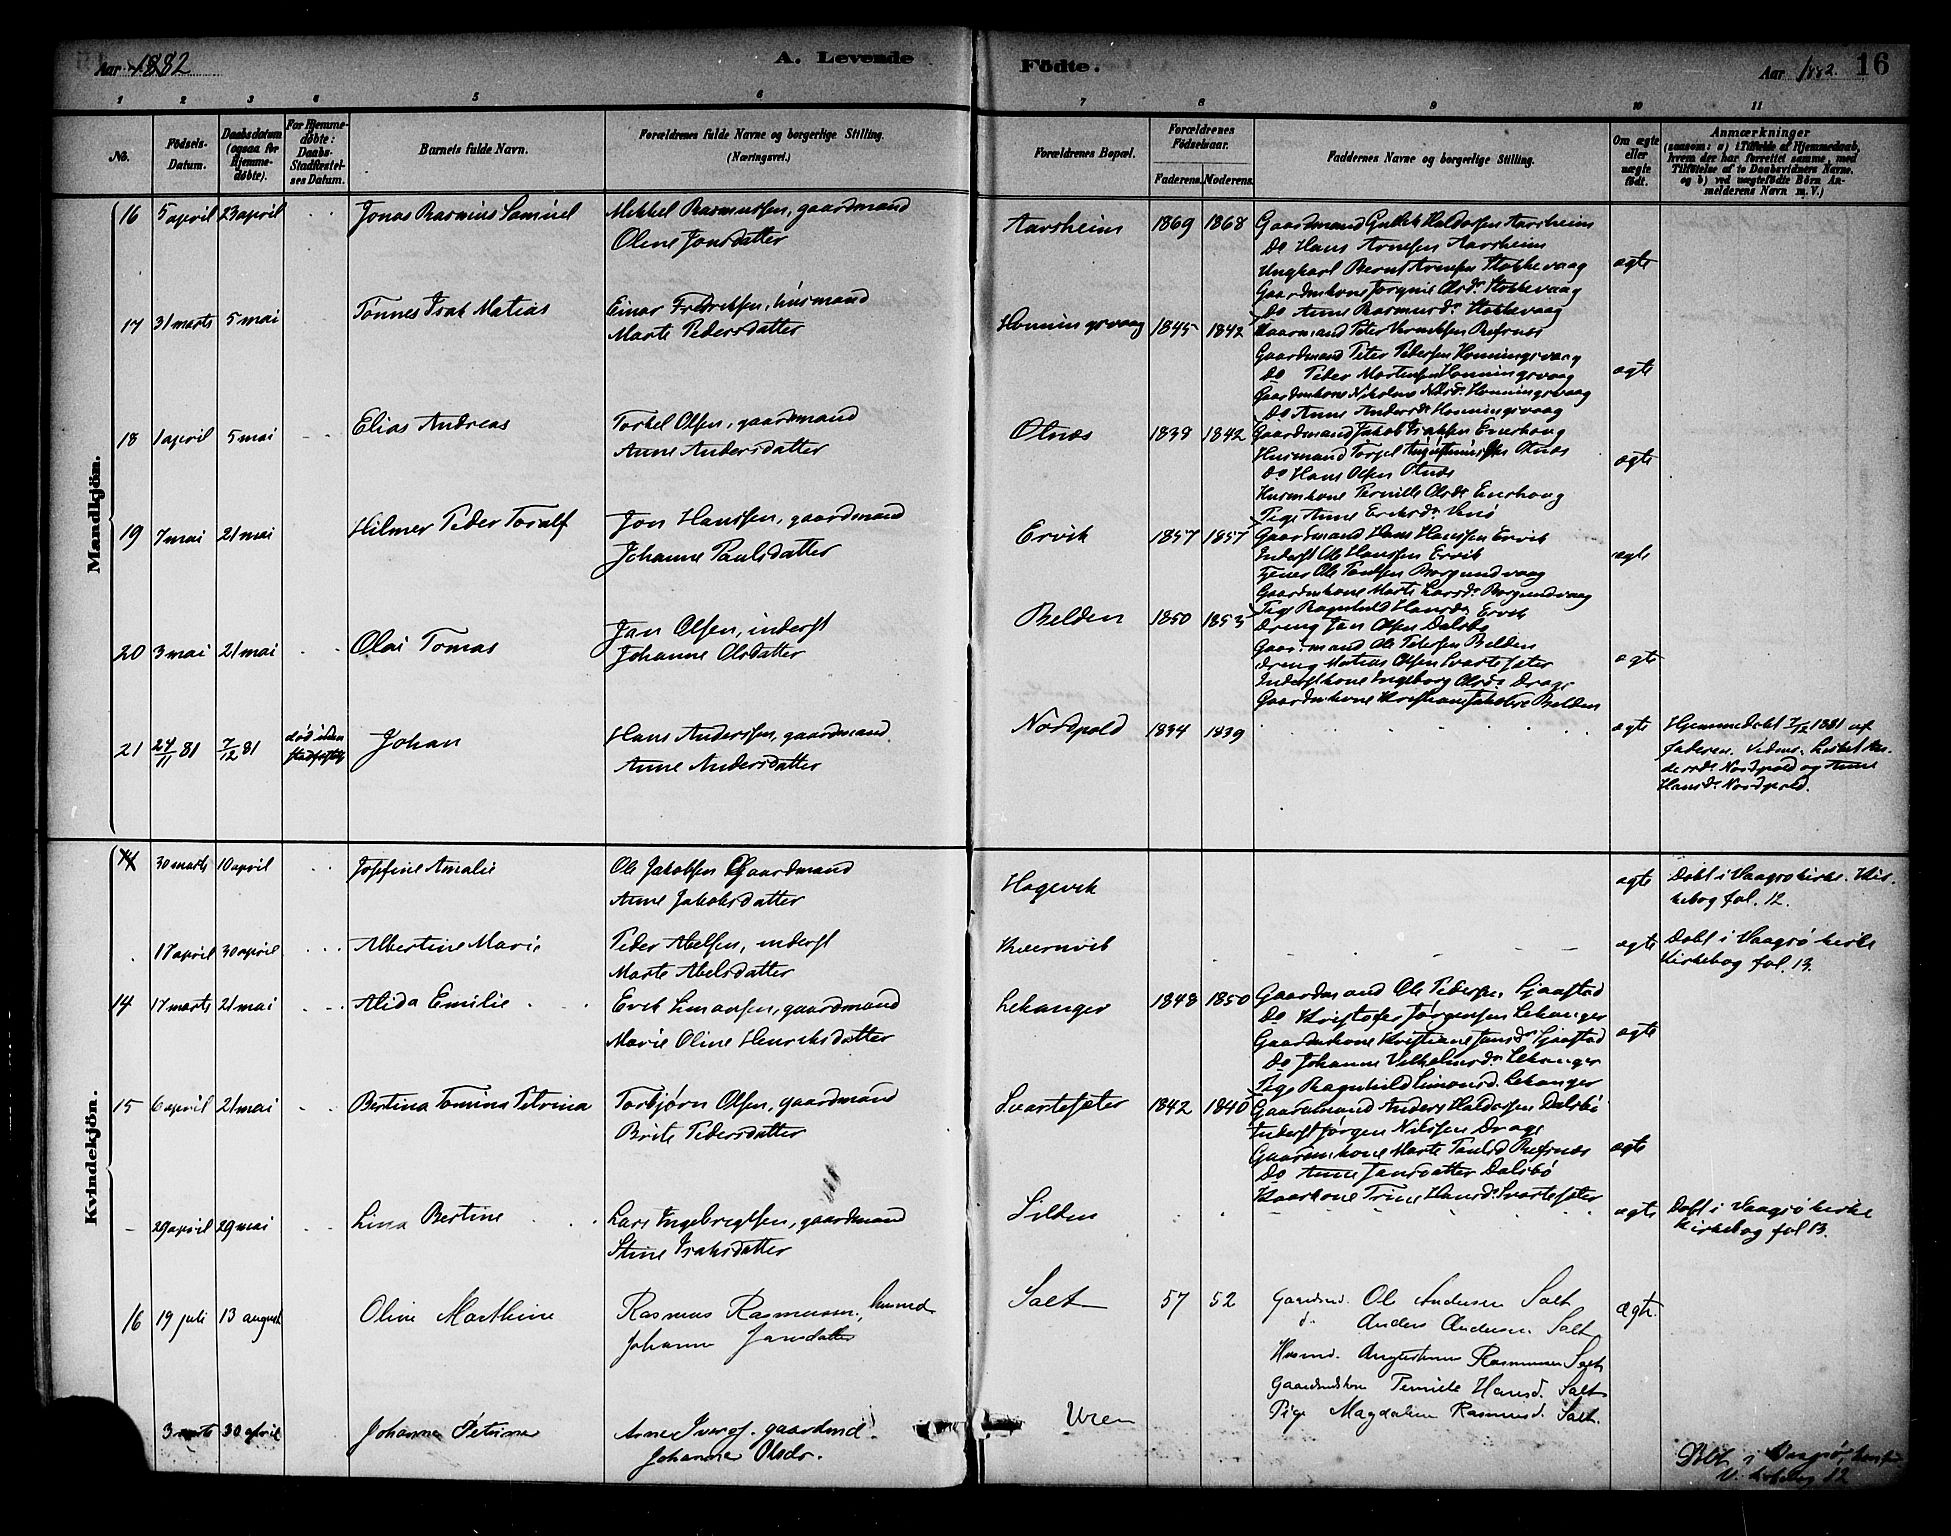 Aar 1882
A. Levende
Födte.
Aar 1882.
16
1 2 3 4 5 6 7 8 9 10 11
No.
Födsels-Datum.
Daabsdatum (ogsaa for Hjemmedøbte).
For Hjemmedøbte: Daabs-Stadfæstelses Datum.
Barnets fulde Navn.
Forældrenes fulde Navne og borgerlige Stilling.
(Næringsvei.)
Forældrenes Bopæl.
Forældrenes Födselsaar.
Faderens. Moderens.
Faddernes Navne og borgerlige Stilling.
Om ægte eller uægte födt.
Anmærkninger
(saasom: a) i Tilfælde af Hjemmedaab,
hvem der har forrettet samme, med
Tilføielse af to Daabsvidners Navne,
og b) ved uægtefødte Börn Anmelderens Navn m. V.)
Mandkjön.
16 5 april 23 april Jonas Rasmus Samuel
Mikkel Rasmussen, gaardmand
Oline Jonsdatter
Aarsheim 1869 1868
Gaardmand Gullik Haldorsen Aarsheim
Do Hans Arnesen Aarsheim
Ungkarl Bernt Arnesen Stokkevaag
Gaardmkone Jorgine Olsdr Stokkevaag
Do Anne Rasmusdr Stokkevaag
ægte
17 31 marts 5 mai Tönnes Isak Matias
Einar Fredriksen, husmand
Marte Pedersdatter
Honningsvaag 1845 1842
Kaarmand Peter Refsnæs
Gaardmand Peter Pedersen Honningsvaag
Do Peder Mortensen Honningsvaag
Gaardmkone Nikoline Nilsdr Honningsvaag
Do Anne Andersdr Honningsvaag
ægte
18 1 april 5 mai Elias Andreas
Torkel Olsen, gaardmand
Anne Andersdatter
Otnæs 1839 1842
Gaardmand Jakob Isaksen Enerhaug
Husmand Torgel Otnæs
Do Hans Olsen Otnæs
Husmkone Pernille Olsdr Enerhaug
Pige Anne Eriksdr
ægte
19 7 mai 21 mai Hilmer Peder Toralf
Jon Hanssen, gaardmand
Johanne Paulsdatter
Ervik 1857 1857
Gaardmand Hans Hanssen Ervik
Inderst Ole Hanssen Ervik
Tjener Ole Paulsen Borgundvaag
Gaardmkone Marte Larsdr Borgundvaag
Pige Ragnhild Hansdr Ervik
ægte
20 3 mai 21 mai Olai Tomas
Jan Olsen, inderst
Johanne Olsdatter
Belden 1850 1853
Dreng Jan Olsen Dalsbø
Gaardmand Ole Petersen Belden
Dreng Matias Olsen Svartesæter
Inderstkone Ingeborg Olsdr Drage
Gaardmkone Kristiane Jakobse Belden
ægte
21 24/11 81 7/12 81 død uden stadfæstelse Johan
Hans Anderssen, gaardmand
Anne Andersdatter
Nordpold 1834 1839
ægte
Hjemmedøbt 7/12 1881 af
faderen. Vidner: Lisbet An-
dersdr Nordpold og Anne
Hansdr Nordpold.
Kvindekjön.
14 30 marts 10 april Josefine Amalie
Ole Jakobsen Gaardmand
Anne Jakobsdatter
Hagevik
ægte
Døbt i Vaagsø kirke. Kir-
kebog fol. 12.
17 april 30 april Albertine Marie
Peder Abelsen, inderst
Marte Abelsdatter
Kvernvik
ægte
Døbt i Vaagsø kirke
Kirkebog fol. 13.
14 17 marts 21 mai Alida Emilie
Erik Simonsen, gaardmand
Marie Oline Henriksdatter
Lekanger 1848 1850
Gaardmand Ole Pedersen Sjaastad
Do Kristofer Jørgensen Lekanger
Gaardmkone Kristiane Jansdr Sjaastad
Do Johanne Vilhelmsdr Lekanger
Pige Ragnhild Simonsd. Lekanger
ægte
15 6 april 21 mai Bertina Tomina Petrina
Torbjørn Olsen, gaardmand
Brite Pedersdatter
Svartesæter 1842 1840
Gaardmand Anders Haldorsen Dalsbø
Inderst Jørgen Nilssen Drage
Gaardmkone Marte Paulsd Refsnæs
Do Anne Jansdatter Dalsbø
Kaarkone Trine Hansdr Svartesæter
ægte
29 april 29 mai Lina Bertine
Lars Ingebrigtsen, gaardmand
Stine Isaksdatter
Silden
ægte
Døbt i Vaagsø kirke
Kirkebog fol 13.
16 19 juli 13 august Oline Marthine
Rasmus Rasmussen, husmd
Johanne Jansdatter
Salt 57 52
Gaardmd. Ole Andersen Salt
d. Anders Andersen Salt
Husmd. Augustinus Rasmussen Salt
Gaardmdskone Pernille Hansd. Salt
Pige Magdalene Rasmusd. Salt.
ægte.
3 marts 30 april Johanne Petrine
Arne Iversen gaardmd.
Johanne Olsdr.
Uren
Døbt i Vaagsø,
12